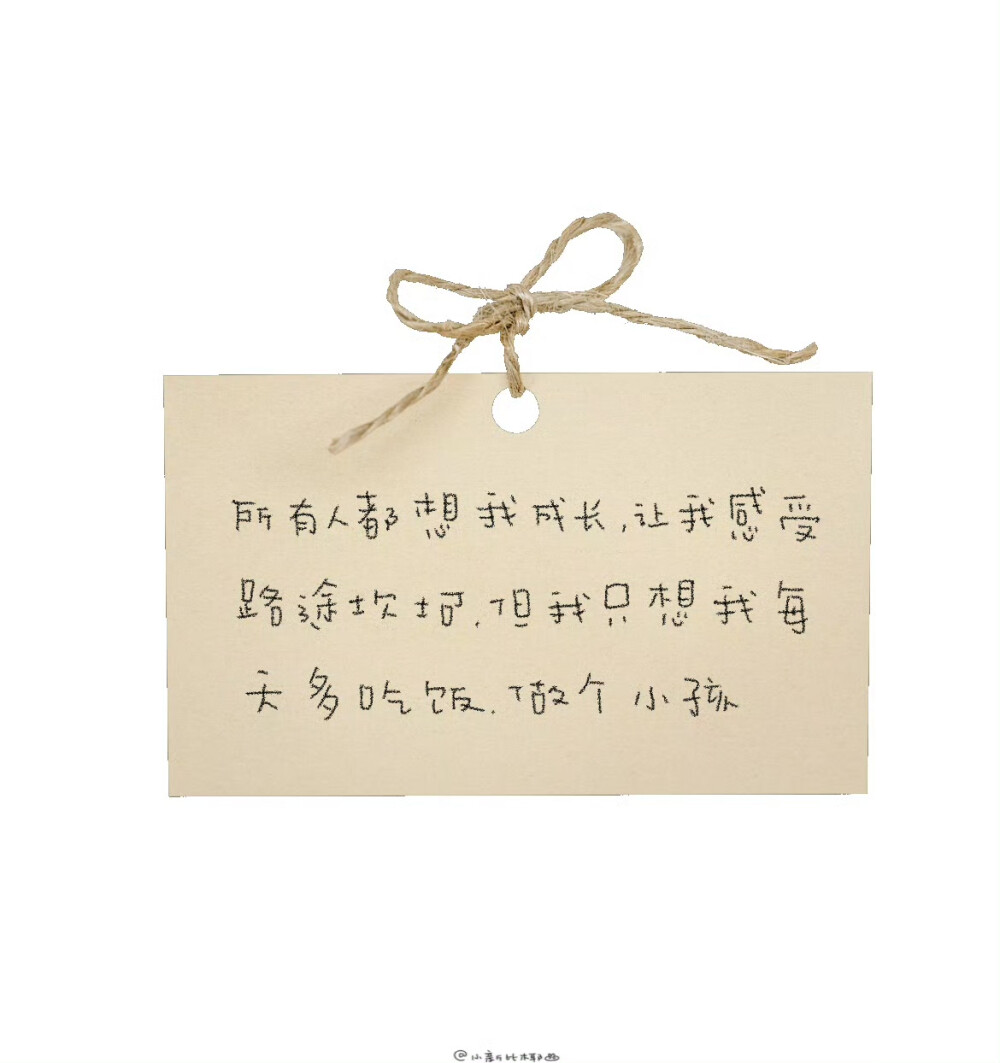 所有人都想我成长,让我感受
路途坎坷.但我只想我每
天多吃饭.做个小孩